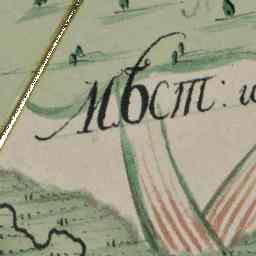 Мѣст: и